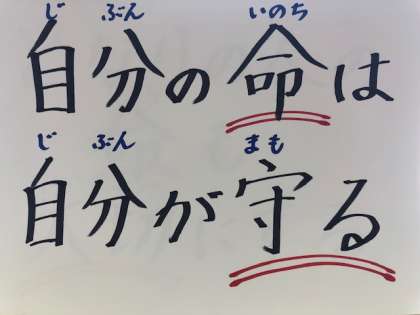 じ ぶん いのち
自分の命は
じ ぶん まも
自分が守る